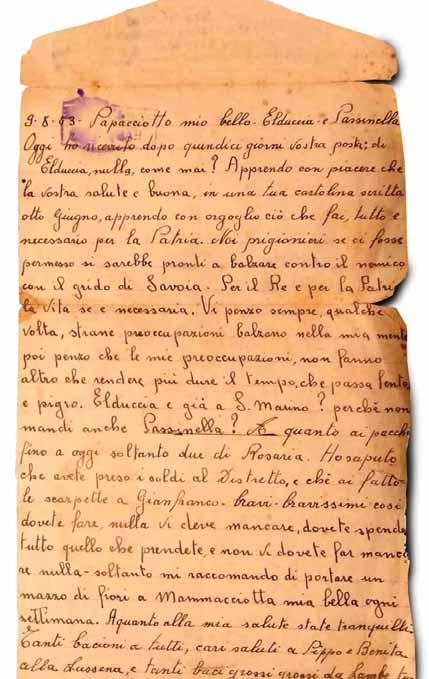 9-8-43- Papacciotto mio bello- Elduccia- e Passinella
Oggi ho ricevuto dopo quindici giorni vostra posta; di
Elduccia, nulla, come mai? Apprendo con piacere che
la vostra salute e buona, in una tua cartolina scritta
otto Giugno, apprendo con orgoglio ciò che fai, tutto e
necessario per la Patria. Noi prigionieri se ci fosse
permesso si sarebbe pronti a balzare contro il nemico
con il grido di Savoia- Per il Re e per la Patri
la vita se e necessaria. Vi penzo sempre, qualche
volta, strane preoccupazioni balzono nella mia mente
poi penzo che le mie preoccupazioni, non fanno
altro che rendere più dure il tempo, che passa lento
e pigro. Elduccia e già a S. Marino? perchè non
mandi anche Passinella? A quanto ai pacchi
fino a oggi soltanto due di Rosaria. Ho saputo
che avete preso i soldi al Distretto, e chè ai fatto
le scarpette a Gianfranco- bravi- bravissimi così
dovete fare, nulla vi deve mancare, dovete spende
tutto quello che prendete, e non vi dovete far manca
re nulla- soltanto mi raccomando di portare un
mazzo di fiori a Mammacciotta mia bella ogni
settimana. Aquanto alla mia salute state tranquilli
Tanti bacioni a tutti, cari saluti a Pippo e Benita
alla Lussena, e tanti baci grossi grossi da